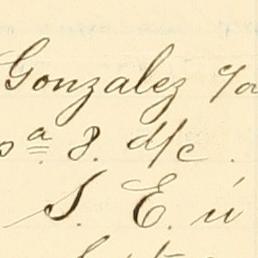 Gonzalez
sª. 8. d/c.
S. E. ú